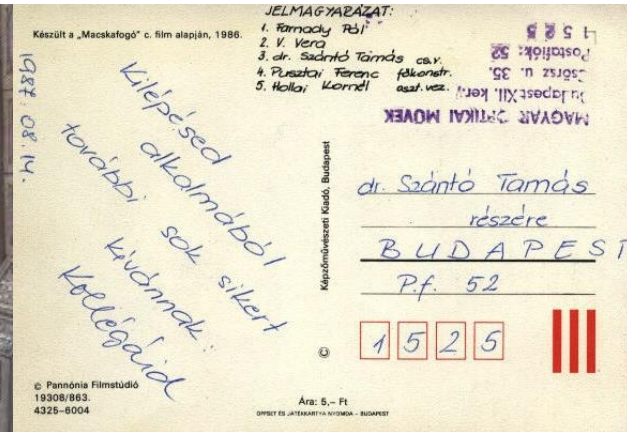 Készült a „Macskafogó” c. film alapján, 1986.
JELMAGYARÁZAT:
1. Farnady Pál
2. V. Vera
3. dr. Szántó Tamás cs.v.
4. Pusztai Ferenc főkonstr.
5. Hollai Kornél oszt.vez.
MAGYAR OPTIKAI MŰVEK
Budapest XII. ker.,
Csörsz u. 35.
Postafiók: 52
1525
1987. 08. 14.
Kilépésed
alkalmából
további sok sikert
kívánnak:
Kollégáid
Képzőművészeti Kiadó, Budapest
©
dr. Szántó Tamás
részére
BUDAPEST
P.f. 52
1525
© Pannónia Filmstúdió
19308/863.
4325–6004
Ára: 5,– Ft
OFFSET ÉS JÁTÉKKÁRTYA NYOMDA – BUDAPEST